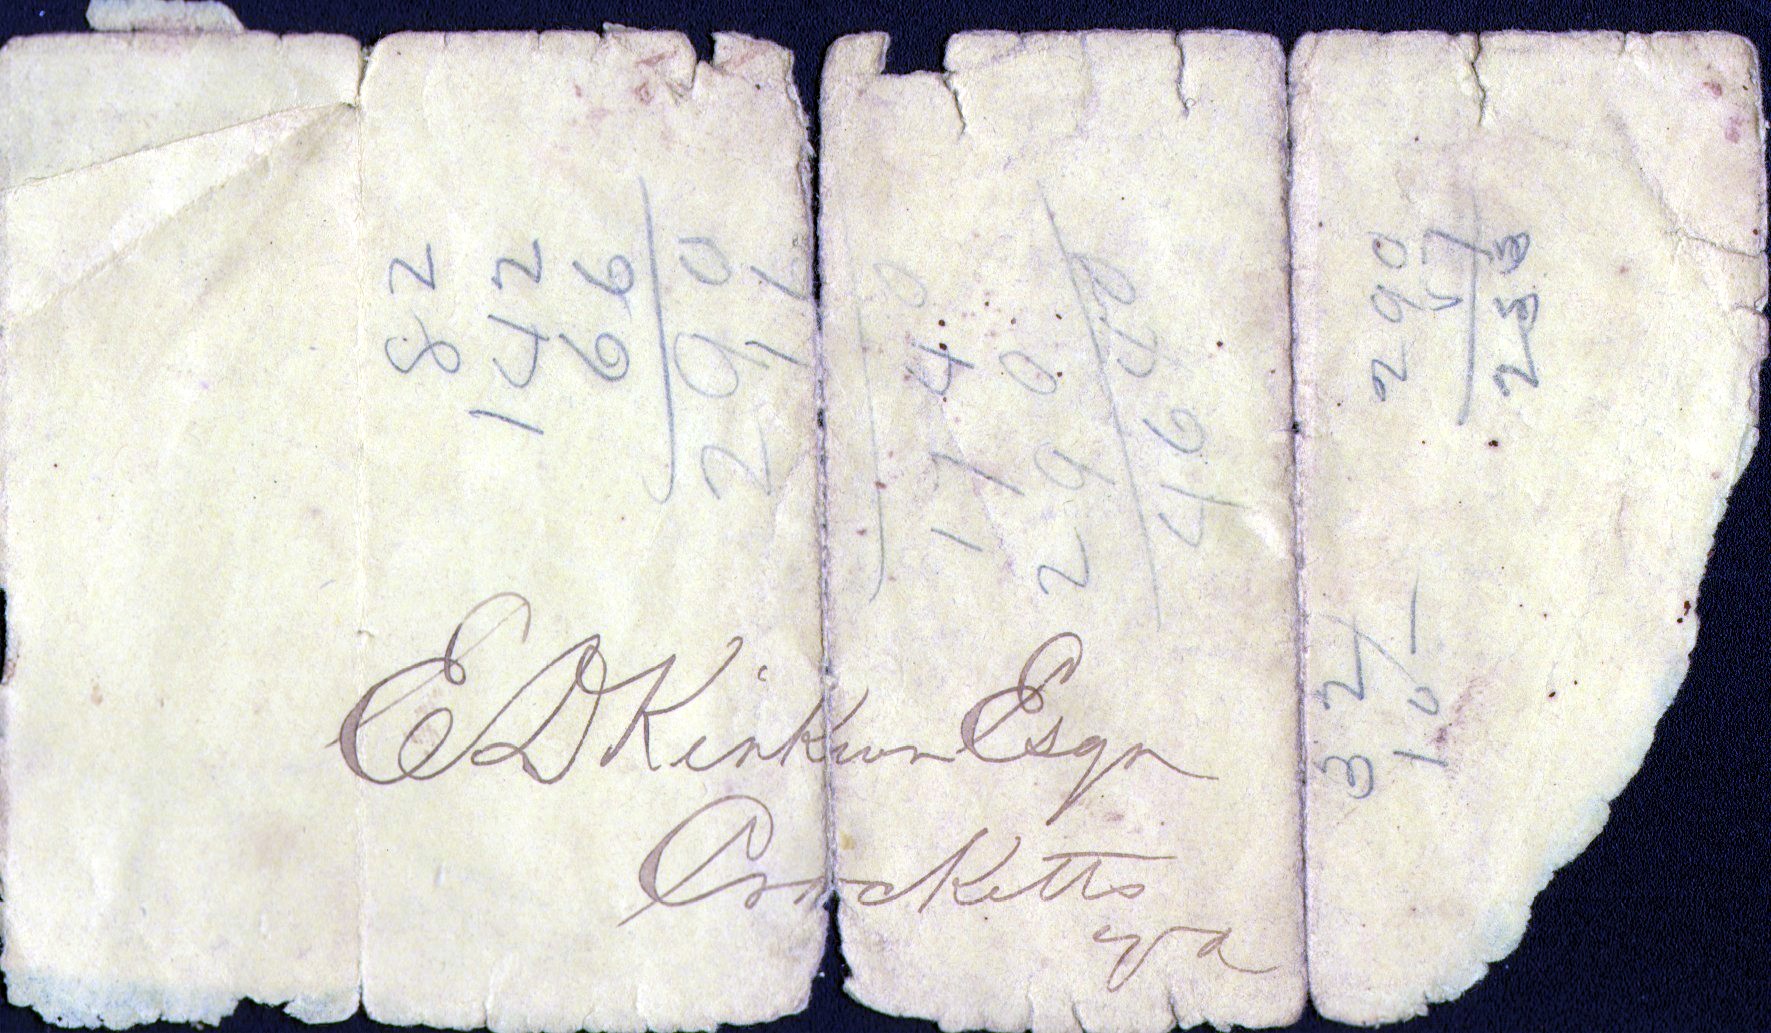 82
142
66
290
174
290
464
290
57
233
32
10
E D Kinkun Esqr
Crocketts
Va